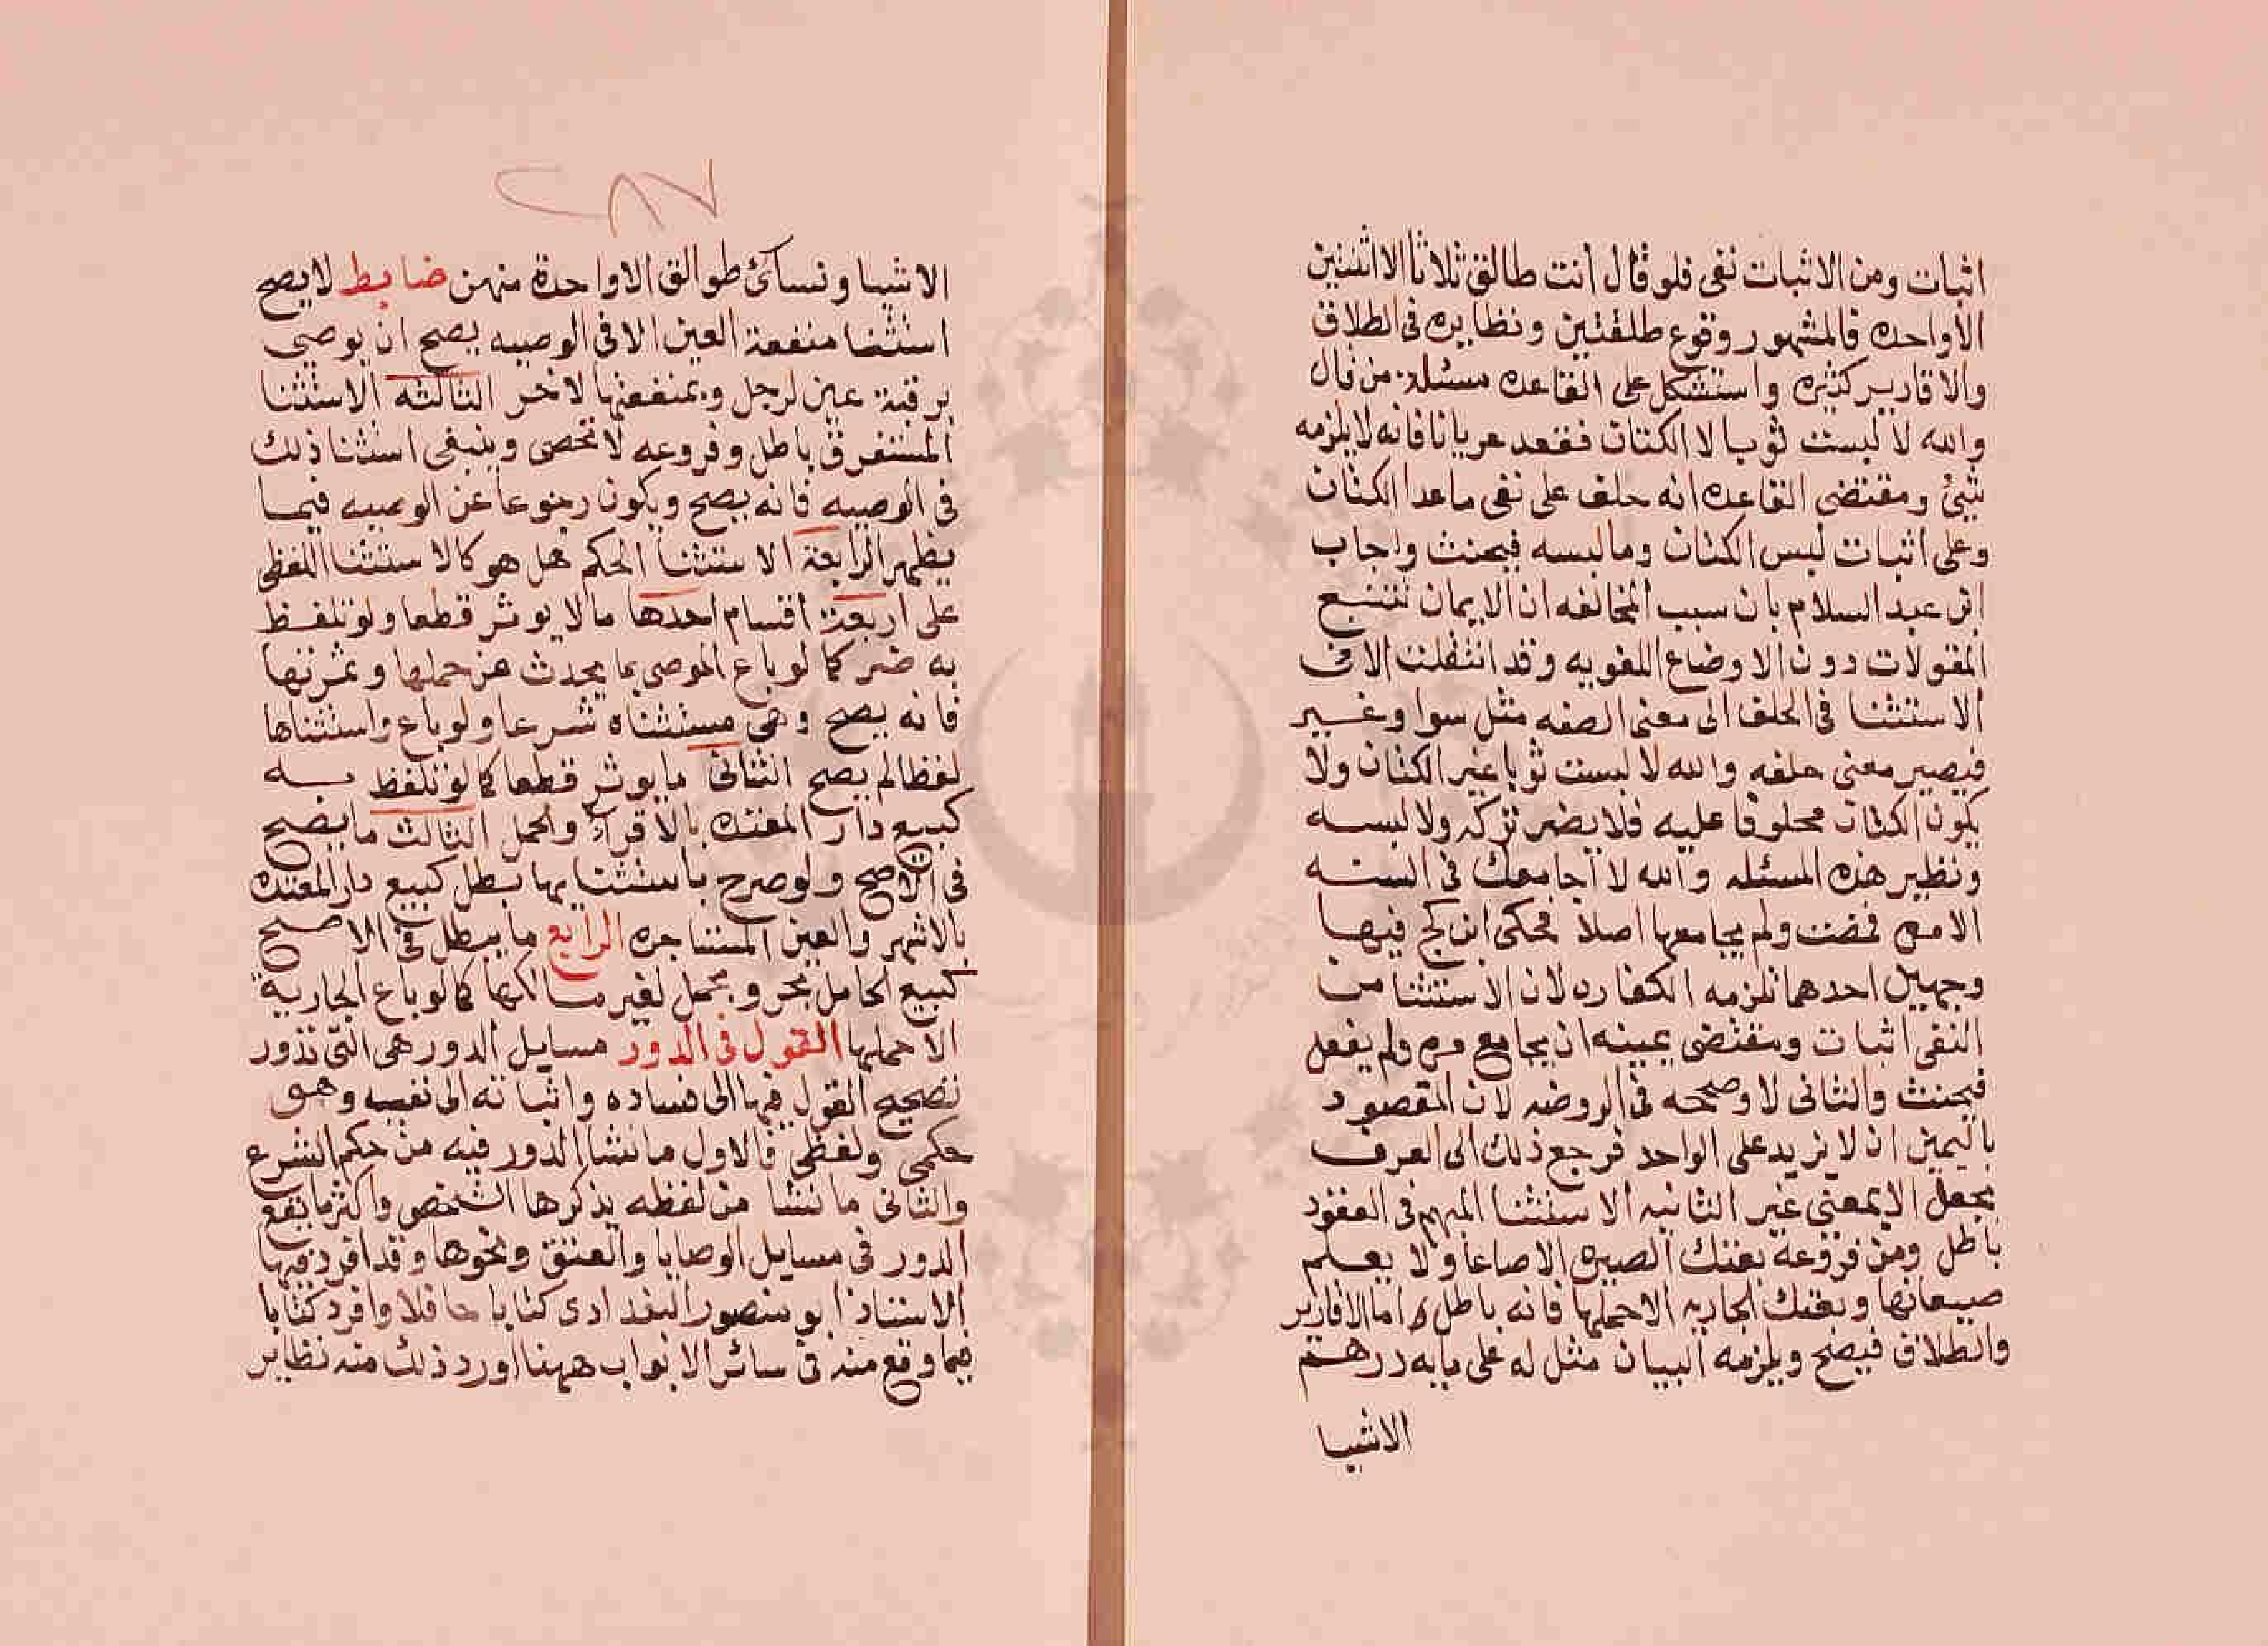 اثبات ومن الاثبات نفى فلو قال أنت طالق ثلاثا الا اثنتين
الا واحدة فالمشهور وقوع طلقتين ونظايره فى الطلاق
والاقارير كثيره واستشكل على القاعدة مسئلة من قال
والله لا لبست ثوبا لا الكتان فقعد عريانا فانه لا يلزمه
شئ ومقتضى القاعدة انه حلف على نفى ماعدا الكتان
وعلى اثبات لبس الكتان ومالبسه فيحنث واجاب
ابن عبد السلام بان سبب المخالفه ان الايمان تتبع
المنقولات دون الاوضاع اللغويه وقد انتقلت الا فى
الاستثنا فى الحلف الى معنى الصفه مثل سوا وغير
فيصير معنى حلفه والله لا لبست ثوبا غير الكتان ولا
يكون الكتان محلوفا عليه فلا يضر تركه ولا لبسه
ونظير هذه المسئله والله لا أجامعك فى السنه
الا مرة فمضت ولم يجامعها اصلا فحكى ابن كج فيها
وجهين احدهما تلزمه الكفاره لان الاستثنا من
النفى اثبات ومقتضى يمينه ان يجامع مرة ولم يفعل
فيحنث والثانى لا وصححه فى الروضه لان المقصود
باليمين ان لا يزيد على الواحد فرجع ذلك الى العرف
بجعل الا بمعنى غير الثانيه الاستثنا المبهم فى العقود
باطل ومن فروعه بعتك الصبرة الا صاعا ولا يعلم
صيعانها وبعتك الجاريه الا حملها فانه باطل واما الاقارير
والطلاق فيصح ويلزمه البيان مثل له على مايه درهم
الاشيا
٢٨٧
الا شيا ونسائ طوالق الا واحدة منهن ضابط لا يصح
استثنا منفعة العين الا فى الوصيه يصح ان يوصى
برقبة عين لرجل وبمنفعتها لاخر الثالثه الاستثنا
المستغرق باطل وفروعه لا تحصى وينبغى استثنا ذلك
فى الوصيه فانه يصح ويكون رجوعا عن الوصيه فيما
يظهر الرابعة الاستثنا الحكم هل هو كالاستثنا اللفظى
على اربعة أقسام احدها مالا يوثر قطعا ولو تلفظ
به ضر كما لو باع الموصى بما يحدث من حملها وثمرتها
فانه يصح وهى مستثناه شرعا ولو باع واستثناها
لفظا لم يصح الثانى ما يوثر قطعا كما لو تلفظ به
كبيع دار المعتدة بالاقرآء والحمل الثالث ما يصح
فى الاصح ولو صرح باستثنايها بطل كبيع دار المعتدة
بالاشهر والعين المستاجره الرابع ما يبطل فى الاصح
كبيع الحامل بحر وبحمل لغير مالكها كما لو باع الجارية
الا حملها القول فى الدور مسايل الدور هى التى تدور
تصحيح القول فيها الى فساده واثباته الى نفيه وهو
حكمى ولفظى فالاول ما نشا الدور فيه من حكم الشرع
والثانى ما نشا من لفظه يذكرها الشخص واكثر ما يقع
الدور فى مسايل الوصايا والعتق ونحوها وقد افرد فيها
الاستاذ ابو منصور البغدادى كتابا حافلا وافرد كتابا
فيما وقع منه فى سائر الابواب وههنا اورد ذلك منه نظاير